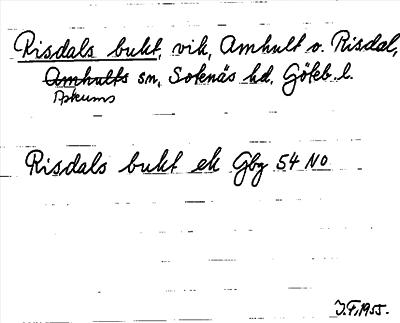 Risdals bukt, vik, Amhult o. Risdal,
Amhults sn, Soknäs hd, Göteb. l.
Apkums
Risdals bukt ek Gbg 54 NO
J.F. 1955.